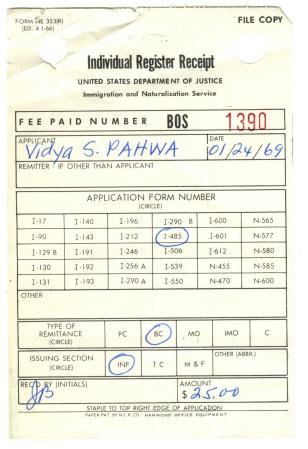 FORM NE 353(R)
(ED. 4-1-66)
FILE COPY
Individual Register Receipt
UNITED STATES DEPARTMENT OF JUSTICE
Immigration and Naturalization Service
FEE PAID NUMBER BOS 1390
APPLICANT DATE
Vidya S. PAHWA 01/24/69
REMITTER IF OTHER THAN APPLICANT
APPLICATION FORM NUMBER
(CIRCLE)
I-17 I-140 I-196 I-290 B I-600 N-565
I-90 I-143 I-212 I-485 I-601 N-577
I-129 B I-191 I-246 I-506 I-612 N-580
I-130 I-192 I-256 A I-539 N-455 N-585
I-131 I-193 I-290 A I-550 N-470 N-600
OTHER
TYPE OF
REMITTANCE
(CIRCLE)
PC BC MO IMO C
ISSUING SECTION
(CIRCLE)
INF T C M & F OTHER (ABBR.)
REC'D BY (INITIALS) AMOUNT
JB $25.00
STAPLE TO TOP RIGHT EDGE OF APPLICATION
PAPER PAT. BY N.C.R. CO. HAMMOND OFFICE EQUIPMENT